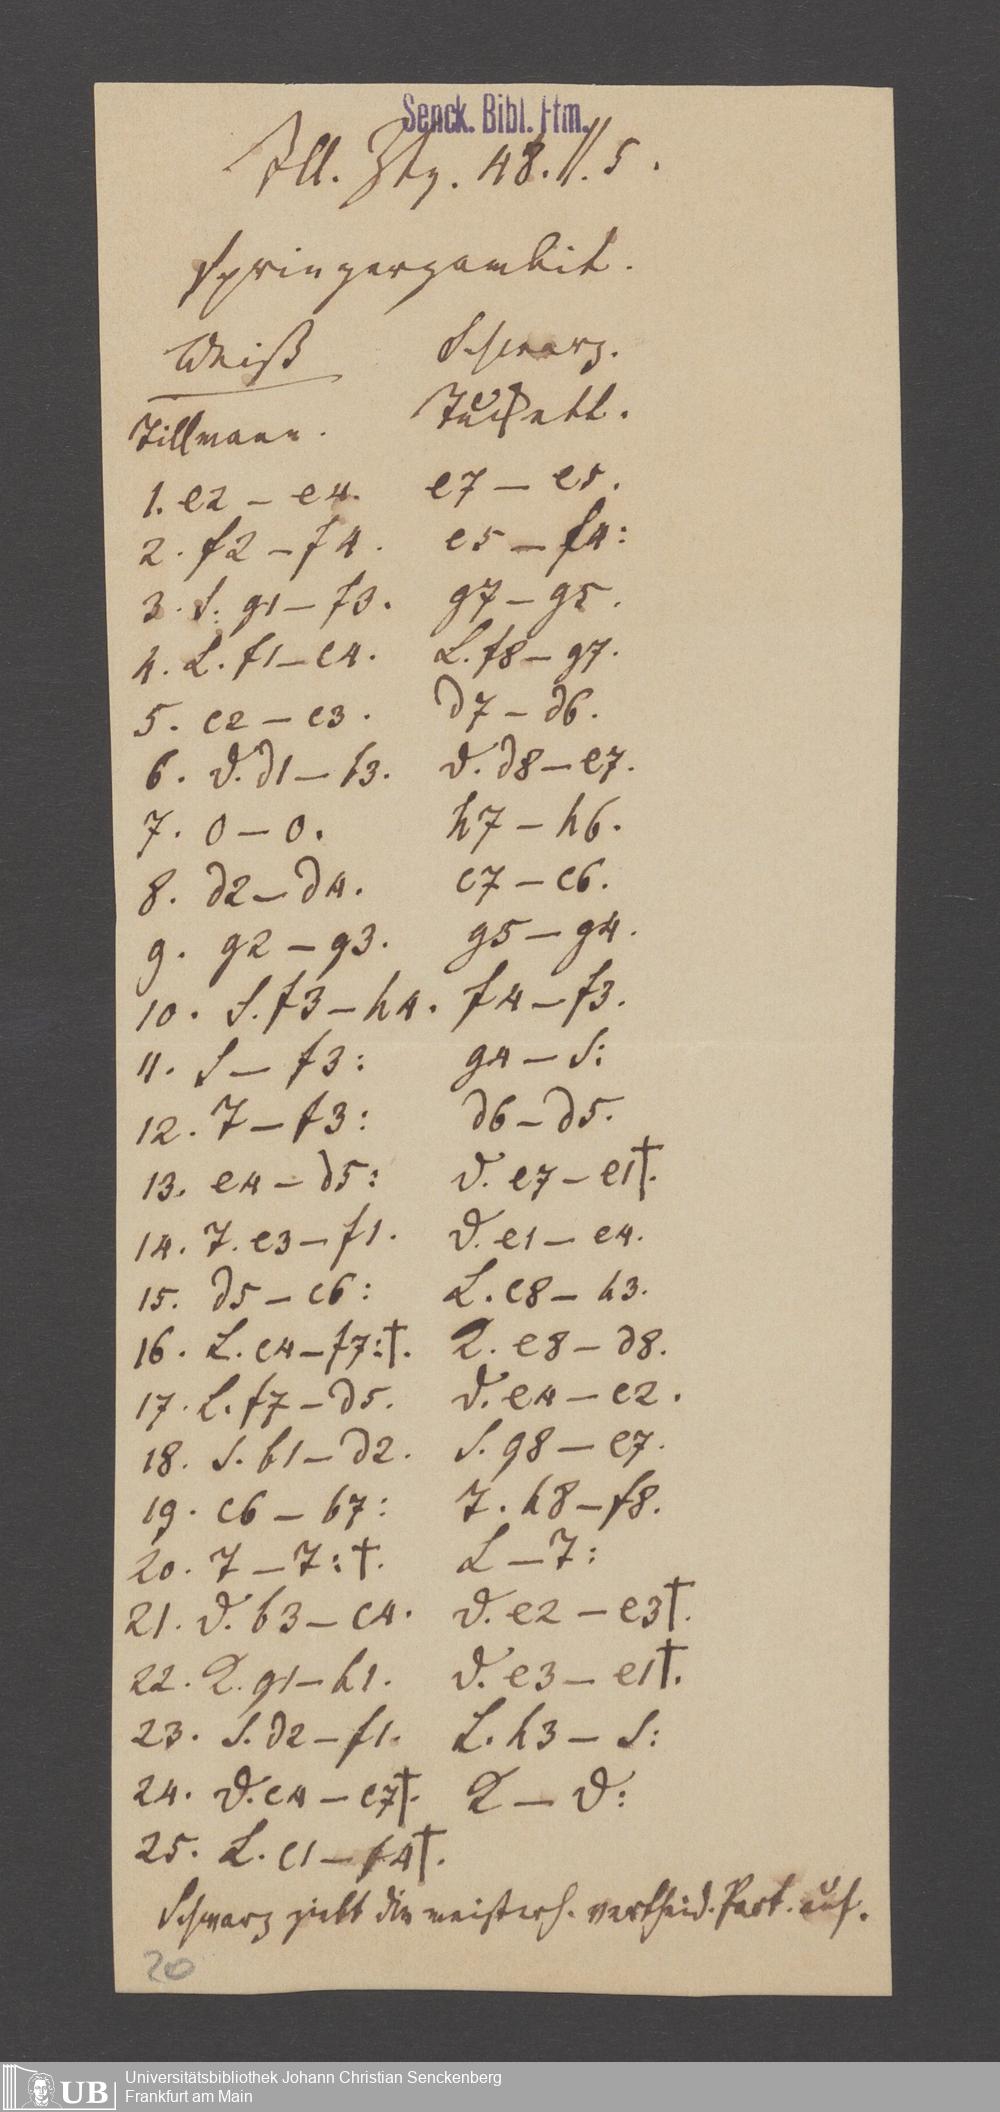 Senck. Bibl. Ffm.
Ill. Ztg. 48. II. 5.
Springergambit.
Weiß Schwarz.
Tillmann.
1. e2 – e4. e7 – e5.
2. f2 – f4. e5 – f4:
3. S. g1 – f3. g7 – g5.
4. L. f1 – c4. L. f8 – g7.
5. c2 – c3. d7 – d6.
6. D. d1 – b3. D. d8 – e7.
7. 0 – 0. h7 – h6.
8. d2 – d4. c7 – c6.
9. g2 – g3. g5 – g4.
10. S. f3 – h4. f4 – f3.
11. S – f3: g4 – S:
12. T – f3: d6 – d5.
13. e4 – d5: D. e7 – e1†.
14. T. e3 – f1. D. e1 – e4.
15. d5 – c6: L. c8 – h3.
16. L. c4 – f7:†. K. e8 – d8.
17. L. f7 – d5. D. e4 – e2.
18. S. b1 – d2. S. g8 – e7.
19. c6 – b7: T. h8 – f8.
20. T – T:†. L – T:
21. D. b3 – c4. D. e2 – e3†.
22. K. g1 – h1. D. e3 – e1†.
23. S. d2 – f1. L. h3 – S:
24. D. c4 – c7†. K – D:
25. L. c1 – f4†.
Schwarz giebt die meisterh. vertheid. Part. auf.
20
UB
Universitätsbibliothek Johann Christian Senckenberg
Frankfurt am Main